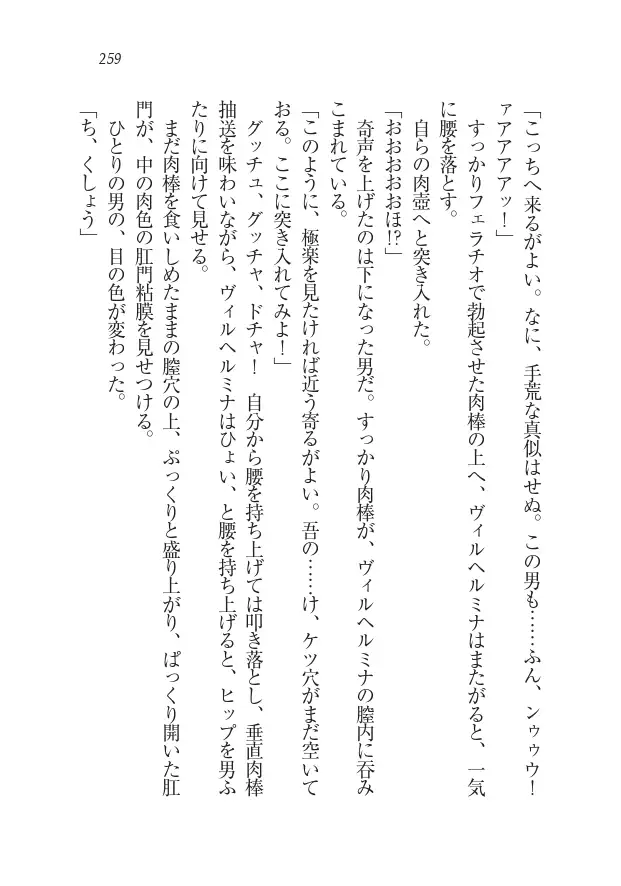 259
「こっちへ来るがよい。なに、手荒な真似はせぬ。この男も……ふん、ンゥゥウ！
ァアアアアッ！」
すっかりフェラチオで勃起させた肉棒の上へ、ヴィルヘルミナはまたがると、一気
に腰を落とす。
自らの肉壺へと突き入れた。
「おおおおおほ!?」
奇声を上げたのは下になった男だ。すっかり肉棒が、ヴィルヘルミナの膣内に呑み
こまれている。
「このように、極楽を見たければ近う寄るがよい。吾の……け、ケツ穴がまだ空いて
おる。ここに突き入れてみよ！」
グッチュ、グッチャ、ドチャ！　自分から腰を持ち上げては叩き落とし、垂直肉棒
抽送を味わいながら、ヴィルヘルミナはひょい、と腰を持ち上げると、ヒップを男ふ
たりに向けて見せる。
まだ肉棒を食いしめたままの膣穴の上、ぷっくりと盛り上がり、ぱっくり開いた肛
門が、中の肉色の肛門粘膜を見せつける。
ひとりの男の、目の色が変わった。
「ち、くしょう」